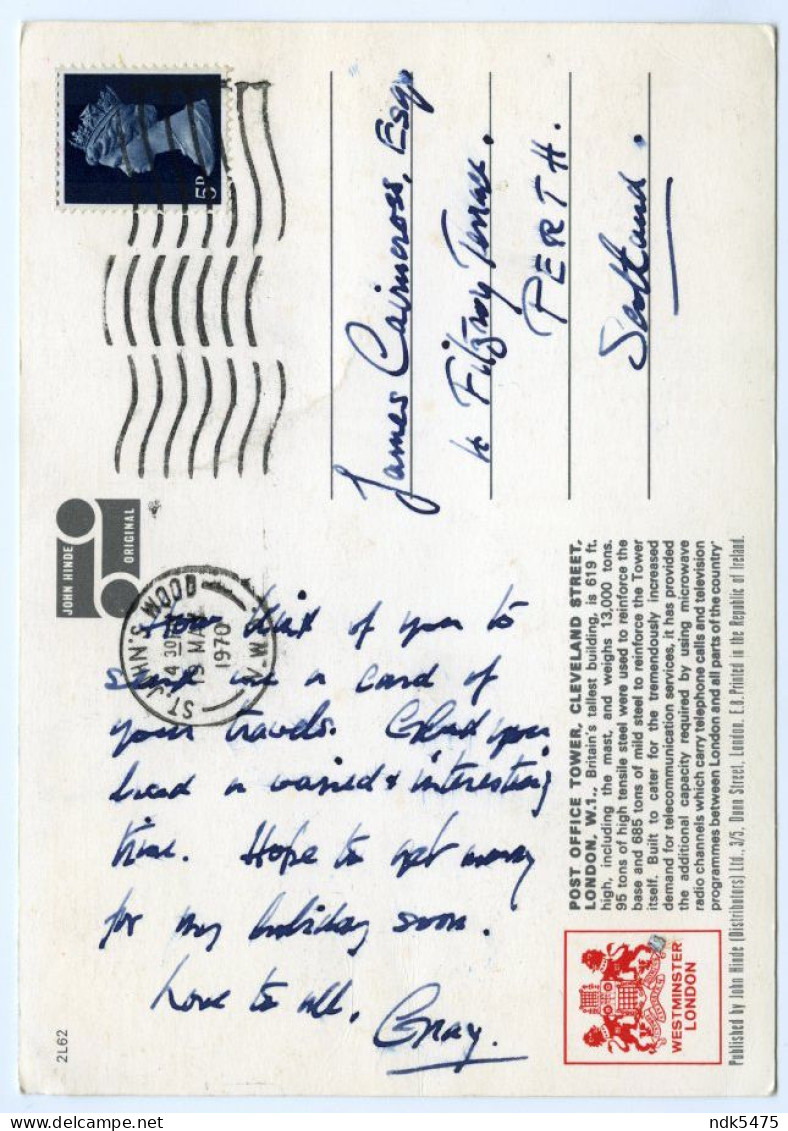 5D
JOHN HINDE
ORIGINAL
ST. JOHN'S WOOD
4 30
19 MAY
1970
N.W.
How kind of you to
send me a card of
your travels. Glad you
had a varied & interesting
time. Hope to get away
for my holiday soon.
Love to all,
Gray.
2L62
James Cairncross, Esq
Fitzroy Terrace,
PERTH.
Scotland.
POST OFFICE TOWER, CLEVELAND STREET,
LONDON, W.1., Britain's tallest building, is 619 ft.
high, including the mast, and weighs 13,000 tons.
95 tons of high tensile steel were used to reinforce the
base and 685 tons of mild steel to reinforce the Tower
itself. Built to cater for the tremendously increased
demand for telecommunication services, it has provided
the additional capacity required by using microwave
radio channels which carry telephone calls and television
programmes between London and all parts of the country'
WESTMINSTER
LONDON
Published by John Hinde (Distributors) Ltd., 3/5, Dunn Street, London, E.8. Printed in the Republic of Ireland.
ndk5475